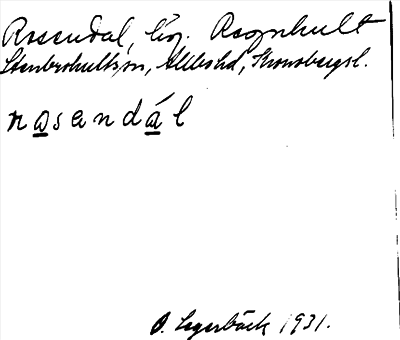 Rosendal, lig. Ragnhult
Stenbrohultssn, Allbohd, Kronobergsl.
rosendál
O. Lagerbäck 1931.